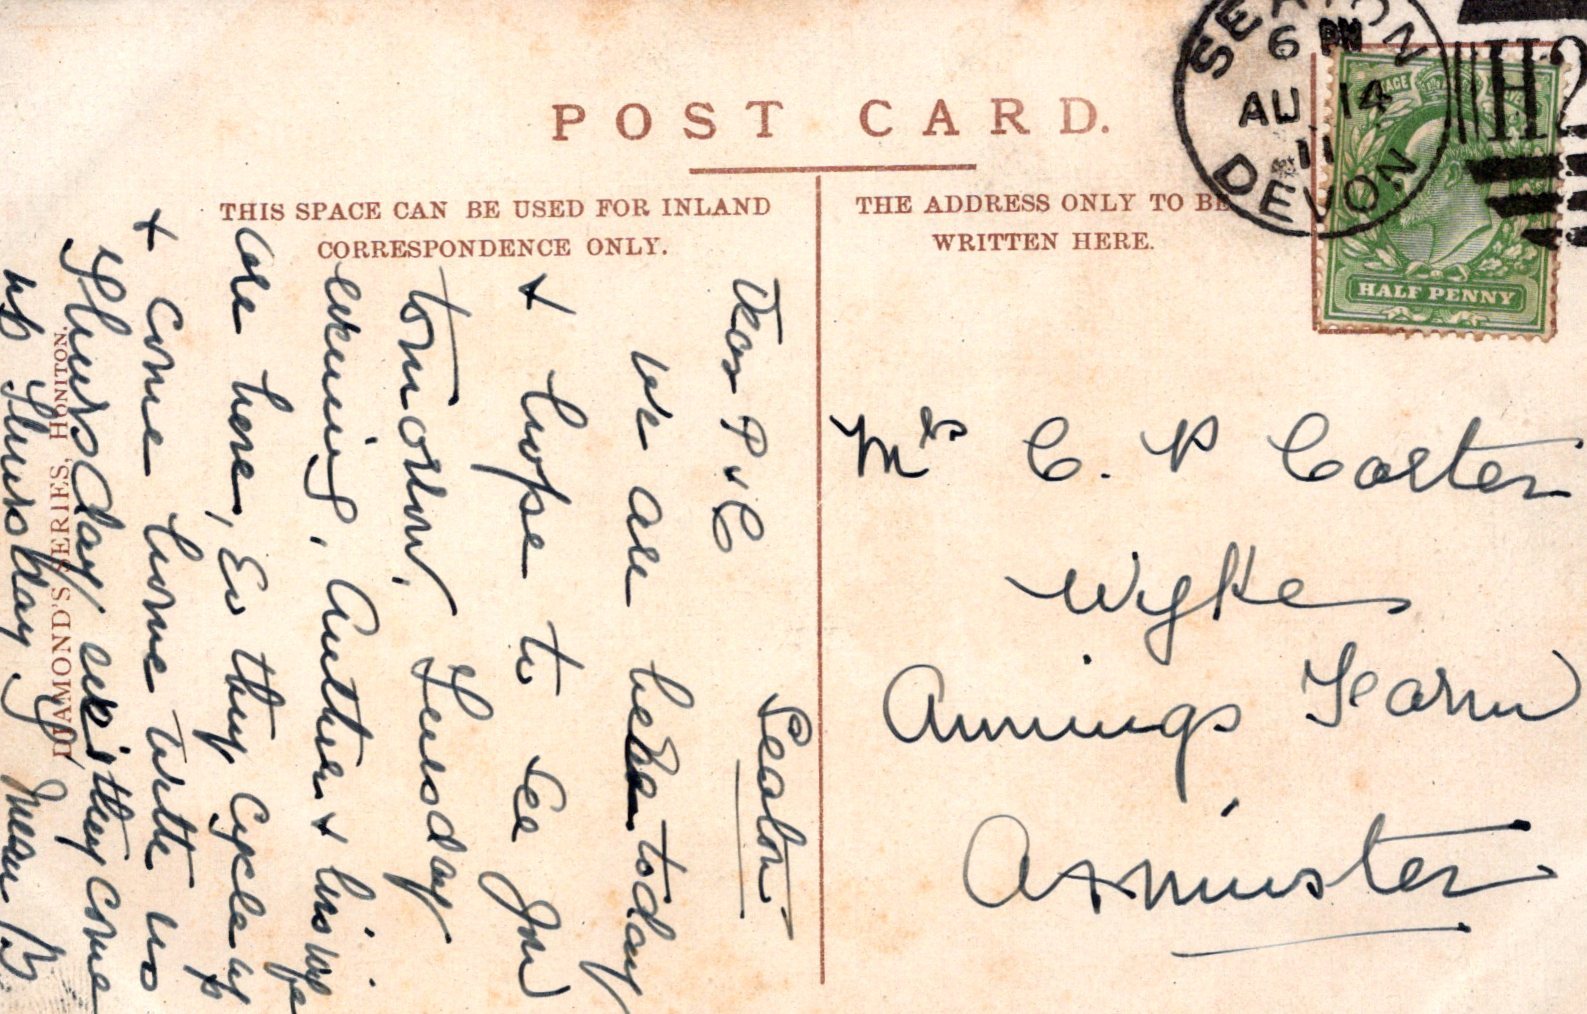 POST CARD.
THIS SPACE CAN BE USED FOR INLAND
CORRESPONDENCE ONLY.
THE ADDRESS ONLY TO BE
WRITTEN HERE.
SEATON
6 PM
AU 14
11
DEVON
H2
HALF PENNY
Mrs C. P Carter
Wyke
Annings Farm
Axminster
Seaton
Dear P & C
We are here today
+ hope to see you
tomorrow, Tuesday
evening, Auther + his wife
are here, Ev they cycle up
+ come home with us
Thursday, they come
up Thursday
DIAMOND'S SERIES, HONITON.